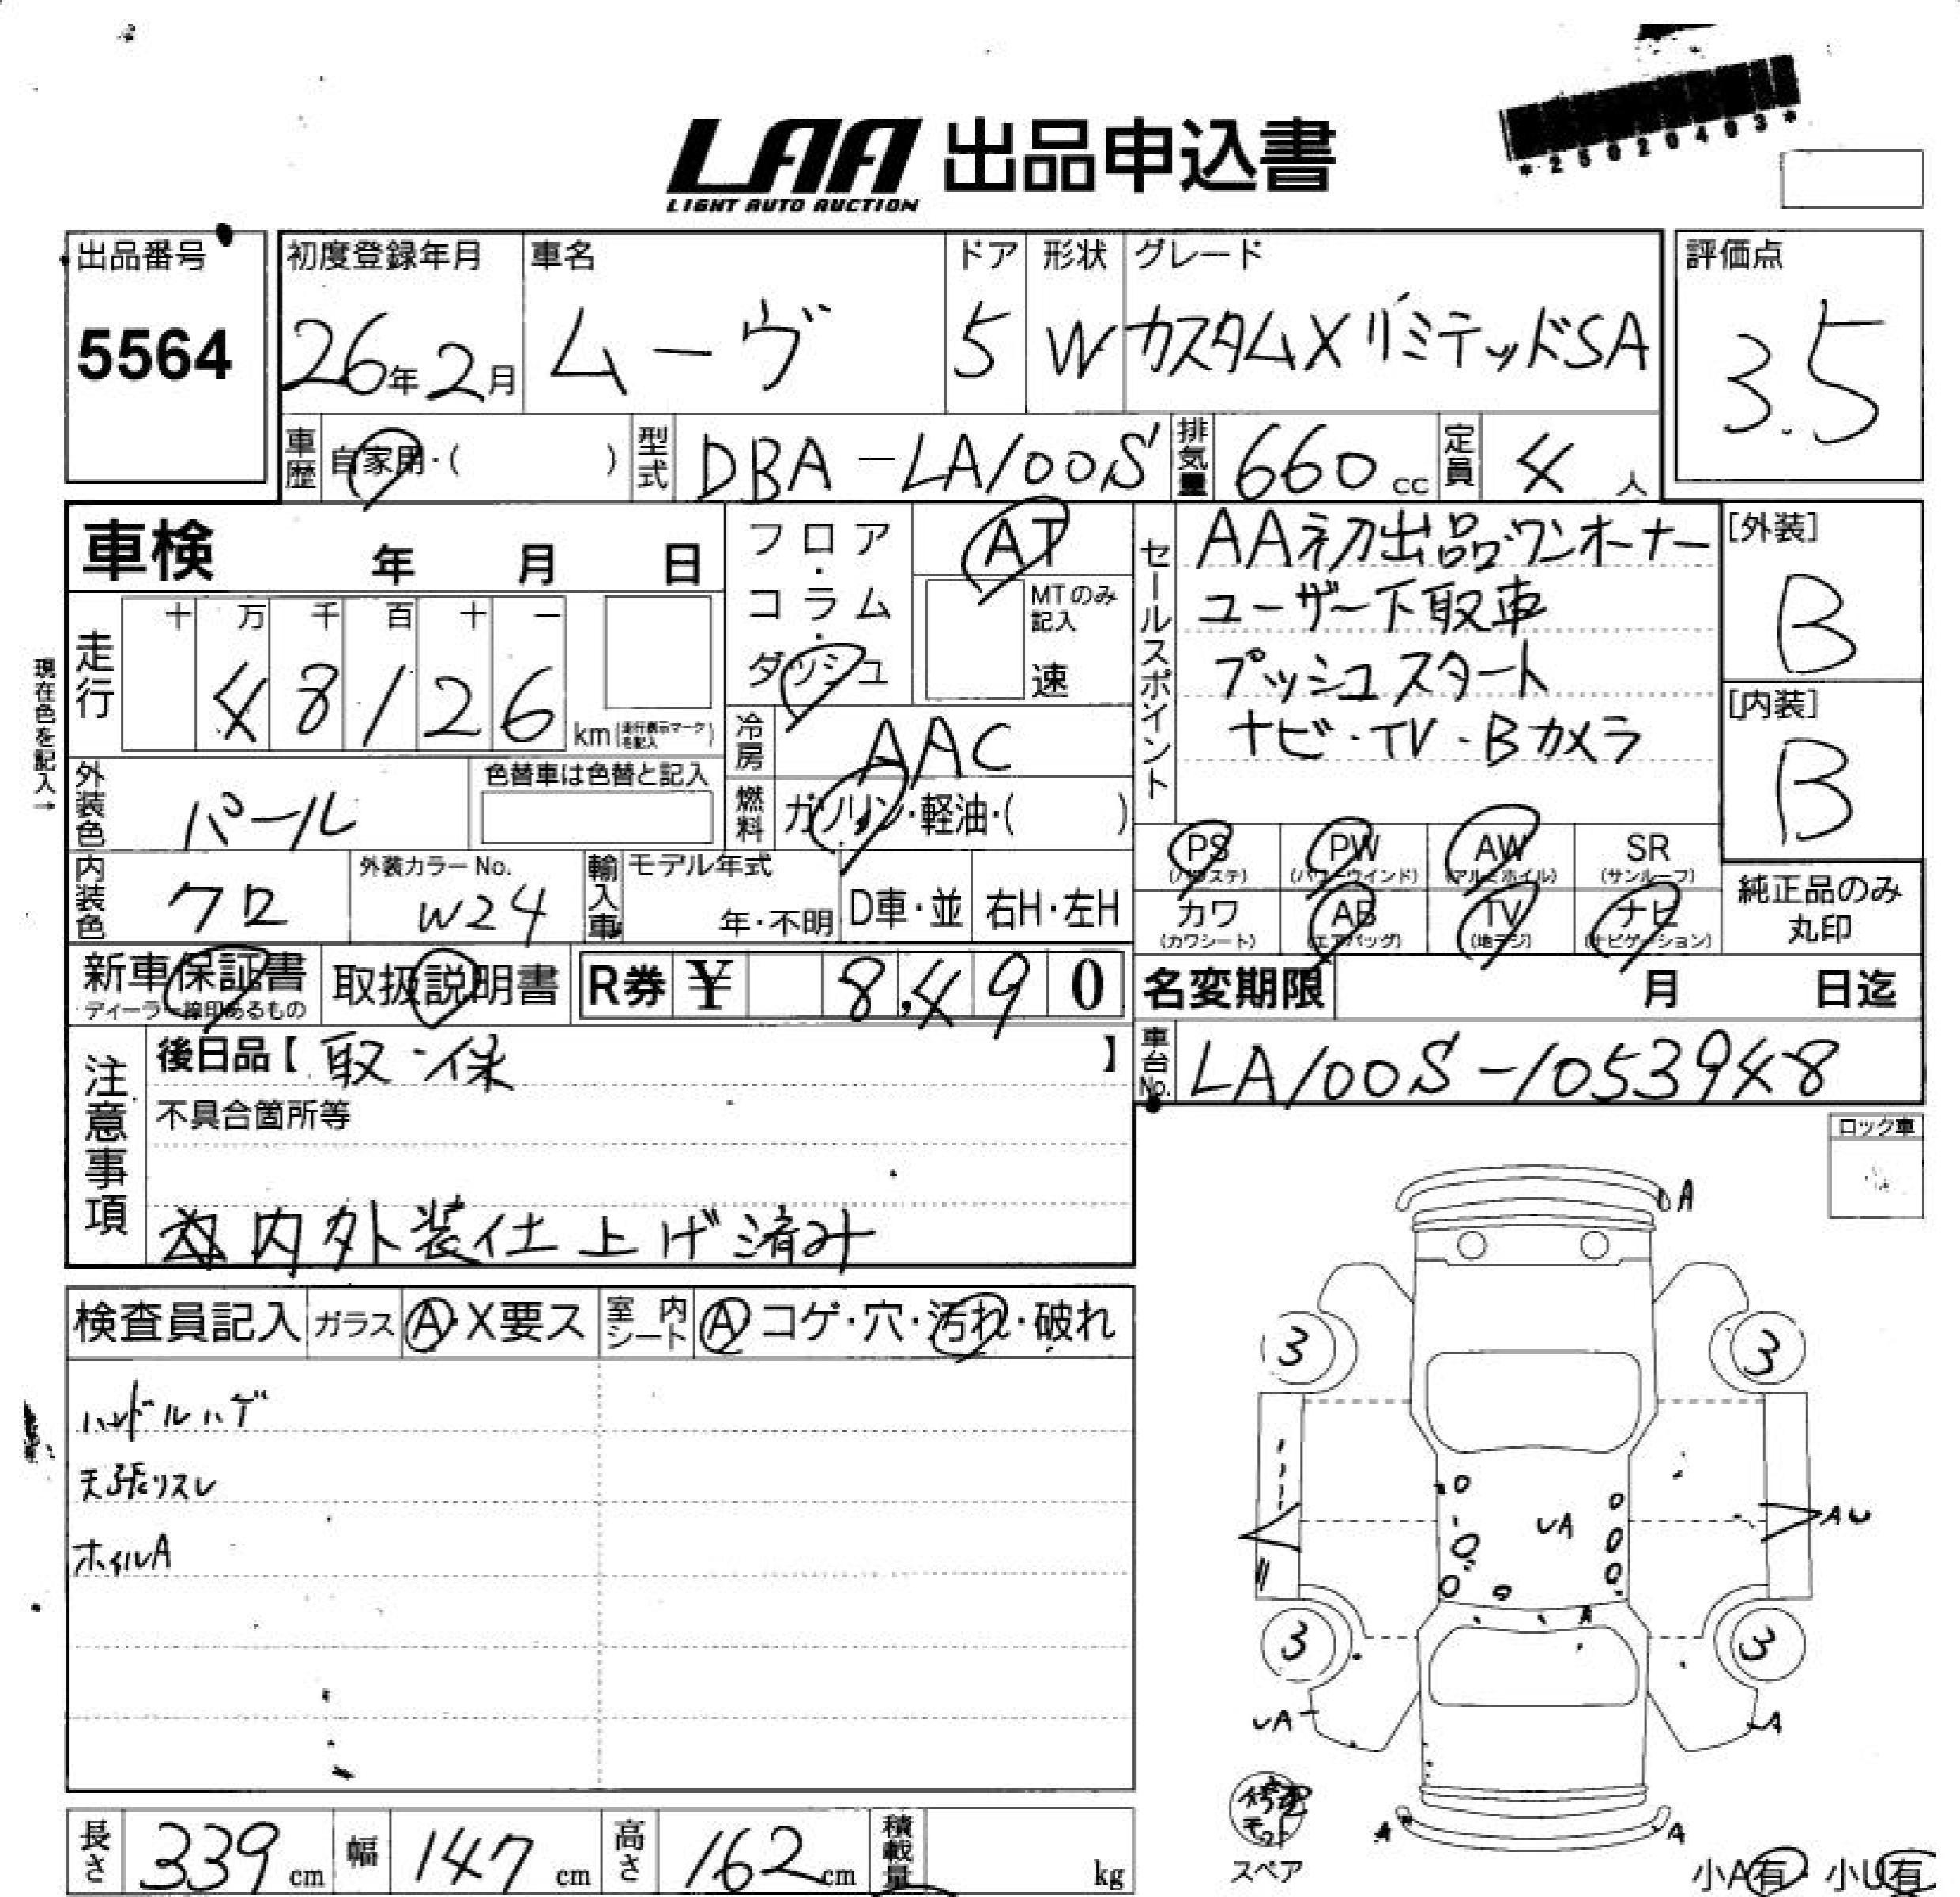 LAA 出品申込書
LIGHT AUTO AUCTION
*25020403*
出品番号
5564
初度登録年月
26年2月
車名
ムーヴ
ドア
5
形状
W
グレード
カスタムXリミテッドSA
評価点
3.5
車歴
自家用・( )
型式
DBA-LA100S
排気量
660cc
定員
4人
車検 年 月 日
フロア・コラム・ダッシュ
AT
MTのみ記入
速
セールスポイント
AA初出品ワンオーナー
ユーザー下取車
プッシュスタート
ナビ・TV・Bカメラ
[外装]
B
[内装]
B
現在色を記入→
走行
十 万 千 百 十 一
4 8 1 2 6 km (走行表示マークを記入)
冷房
AAC
外装色
パール
色替車は色替と記入
燃料
ガソリン・軽油・( )
内装色
クロ
外装カラーNo.
W24
輸入車
モデル年式
年・不明
D車・並
右H・左H
PS
(パワステ)
PW
(パワーウインド)
AW
(アルミホイル)
SR
(サンルーフ)
カワ
(カワシート)
AB
(エアバッグ)
TV
(地デジ)
ナビ
(ナビゲーション)
純正品のみ
丸印
新車保証書
ディーラー線印あるもの
取扱説明書
R券 ¥ 8,490
名変期限 月 日迄
注意事項
後日品【 取・保 】
不具合箇所等
内外装仕上げ済み
車台No.
LA100S-1053948
ロック車
検査員記入
ガラス
A・X要ス
室内シート
A コゲ・穴・汚れ・破れ
ハンドルハゲ
天張リスレ
ホイルA
A
3
3
UA
AU
A
3
3
UA
A
A
A
スペア
小A有・小U有
長さ
339cm
幅
147cm
高さ
162cm
積載量
kg